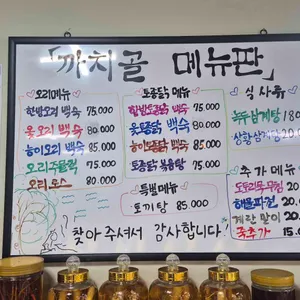 「까치골 메뉴판」
오리메뉴
한방오리 백숙 75,000
옻오리 백숙 80,000
능이오리 백숙 85,000
오리주물럭 75,000
오리로스 80,000
토종닭 메뉴
한방토종닭 백숙 75,000
옻토종닭 백숙 80,000
능이토종닭 백숙 85,000
토종닭 볶음탕 75,000
특별메뉴
토끼탕 85,000
식사류
녹두삼계탕 180
추가메뉴
도토리묵무침 20.0
해물파전 20.0
계란말이 20.0
죽추가 15.0
찾아주셔서 감사합니다!